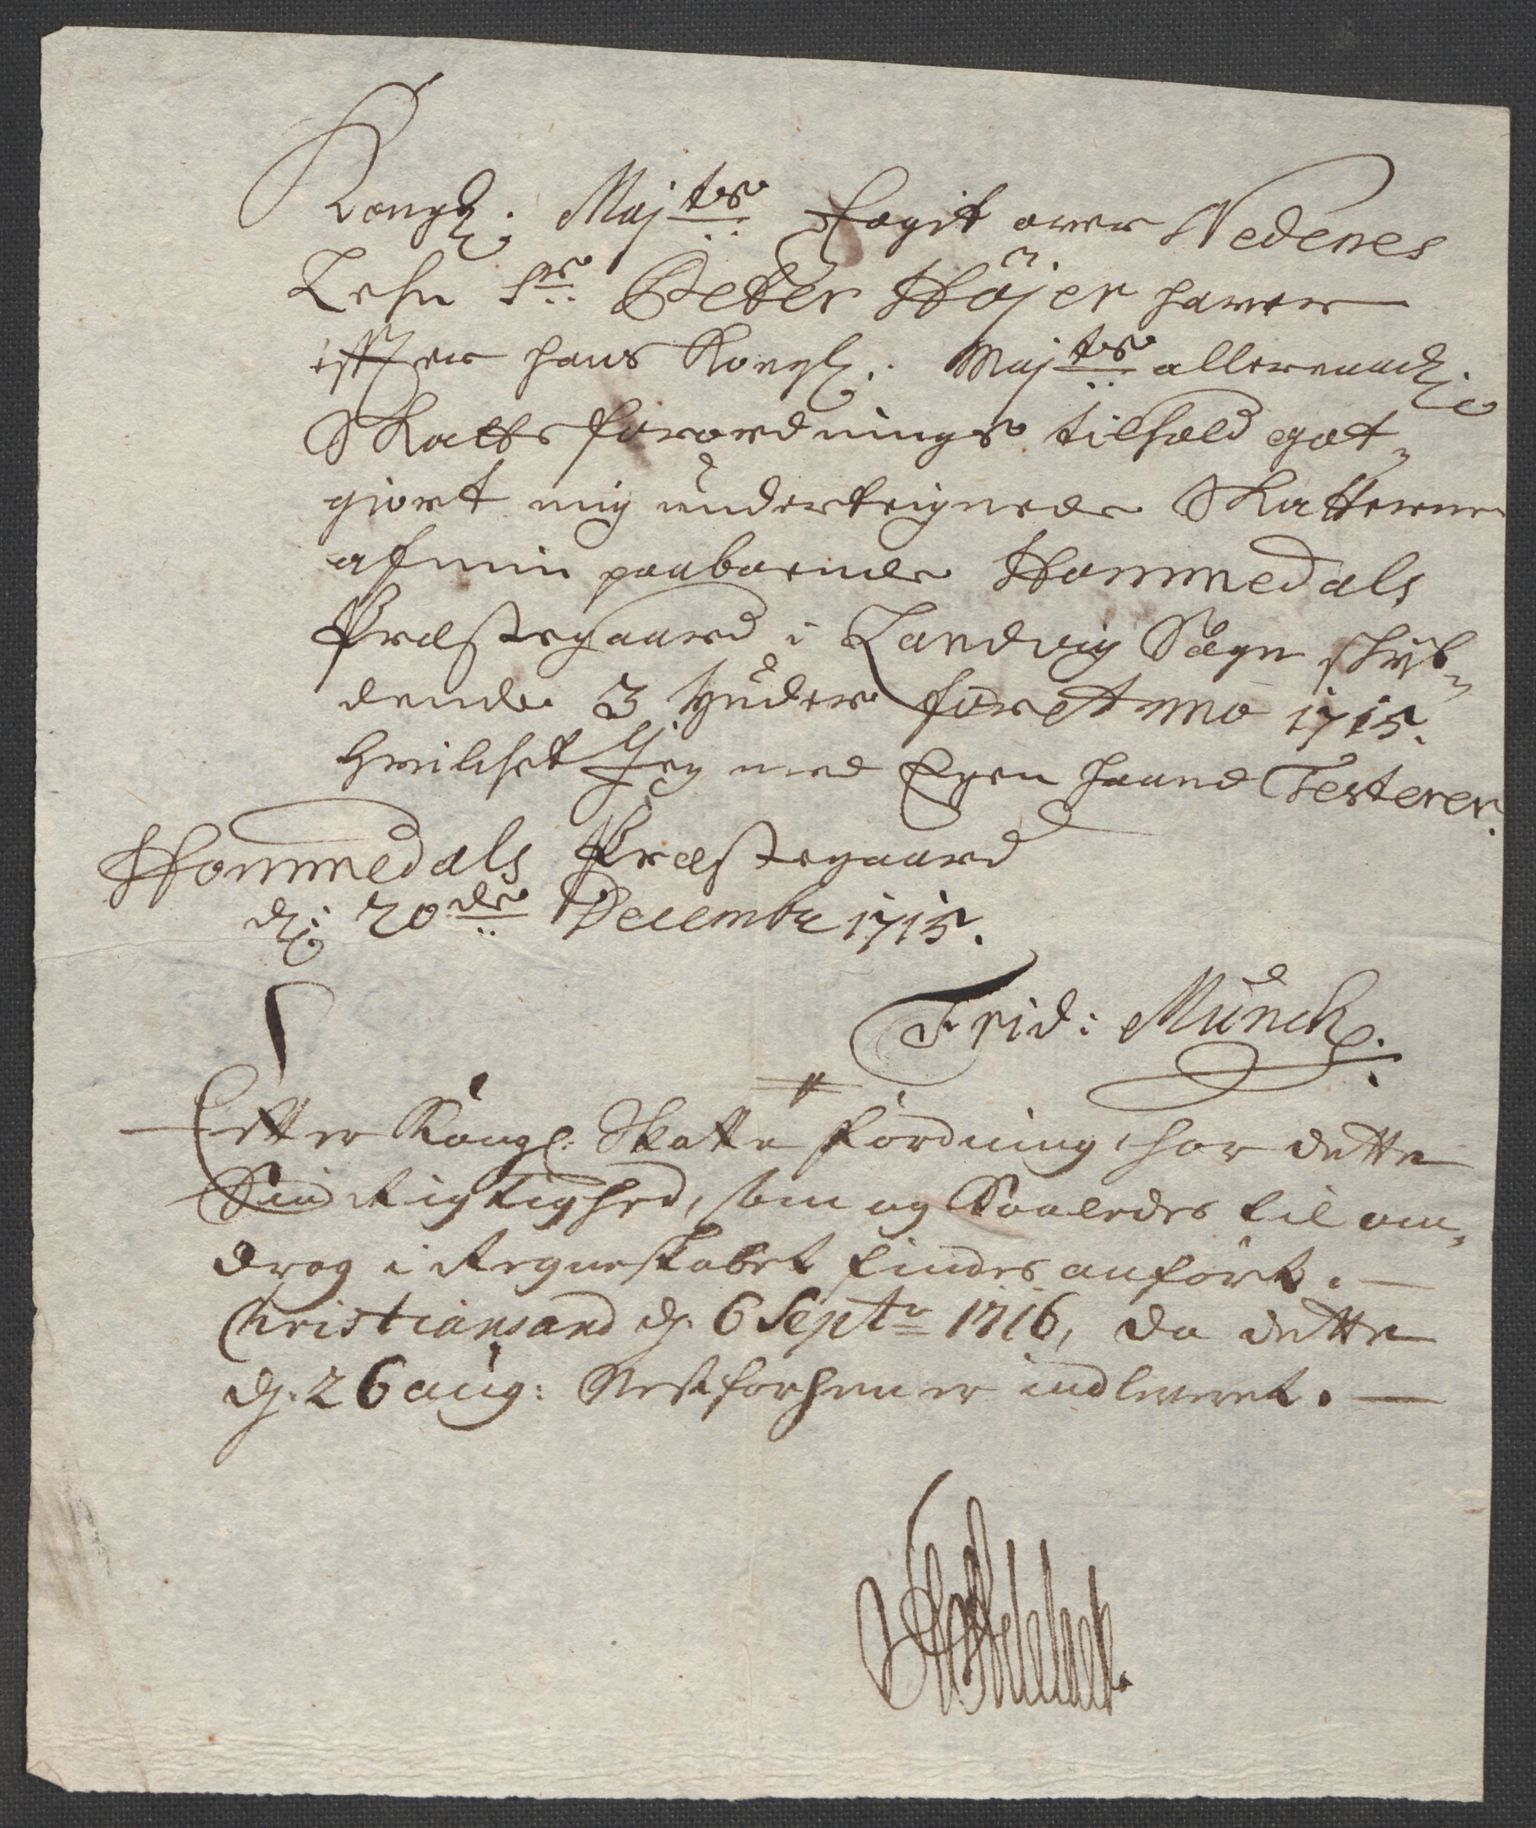 Kongl: Maj:ts Fogit over Nedenes
Lehn Sr: Peter Höjer haver
effter hans Kongl: Maj:ts allernaadi:
Skatts forordnings tilhold got„
giort mig underteignede Skatterne
af min paaboende Hommedals
Præstegaard i Landvig Sogn skyl„
dende 3 Huder for Anno 1715.
hvilchet Jeg med Egen haand Testerer.
Hommedals Præstegaard
d: 20de Decembr 1715.
Frid: Münch.
Efter Kongl: Skatte fordning har dette
Sin Rigtighed, som og Saaledes til om„
drag i Regneskabet findes anført. —
Christiansand d. 6 Septr 1716, da dette
d. 26 aug: Nestforhen er indleveret. —